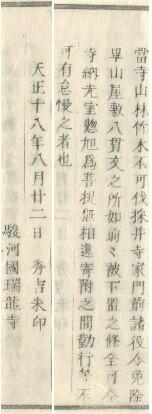 當寺山林竹木不可伐採并寺家門前諸役令免除
畢山屋敷八貫文之所如前々被下置之條全可令
寺納先室惣旭為菩提無相違寄附之間勤行等不
可有怠慢之者也
天正十八年八月廿二日　秀吉朱印
駿河國瑞龍寺